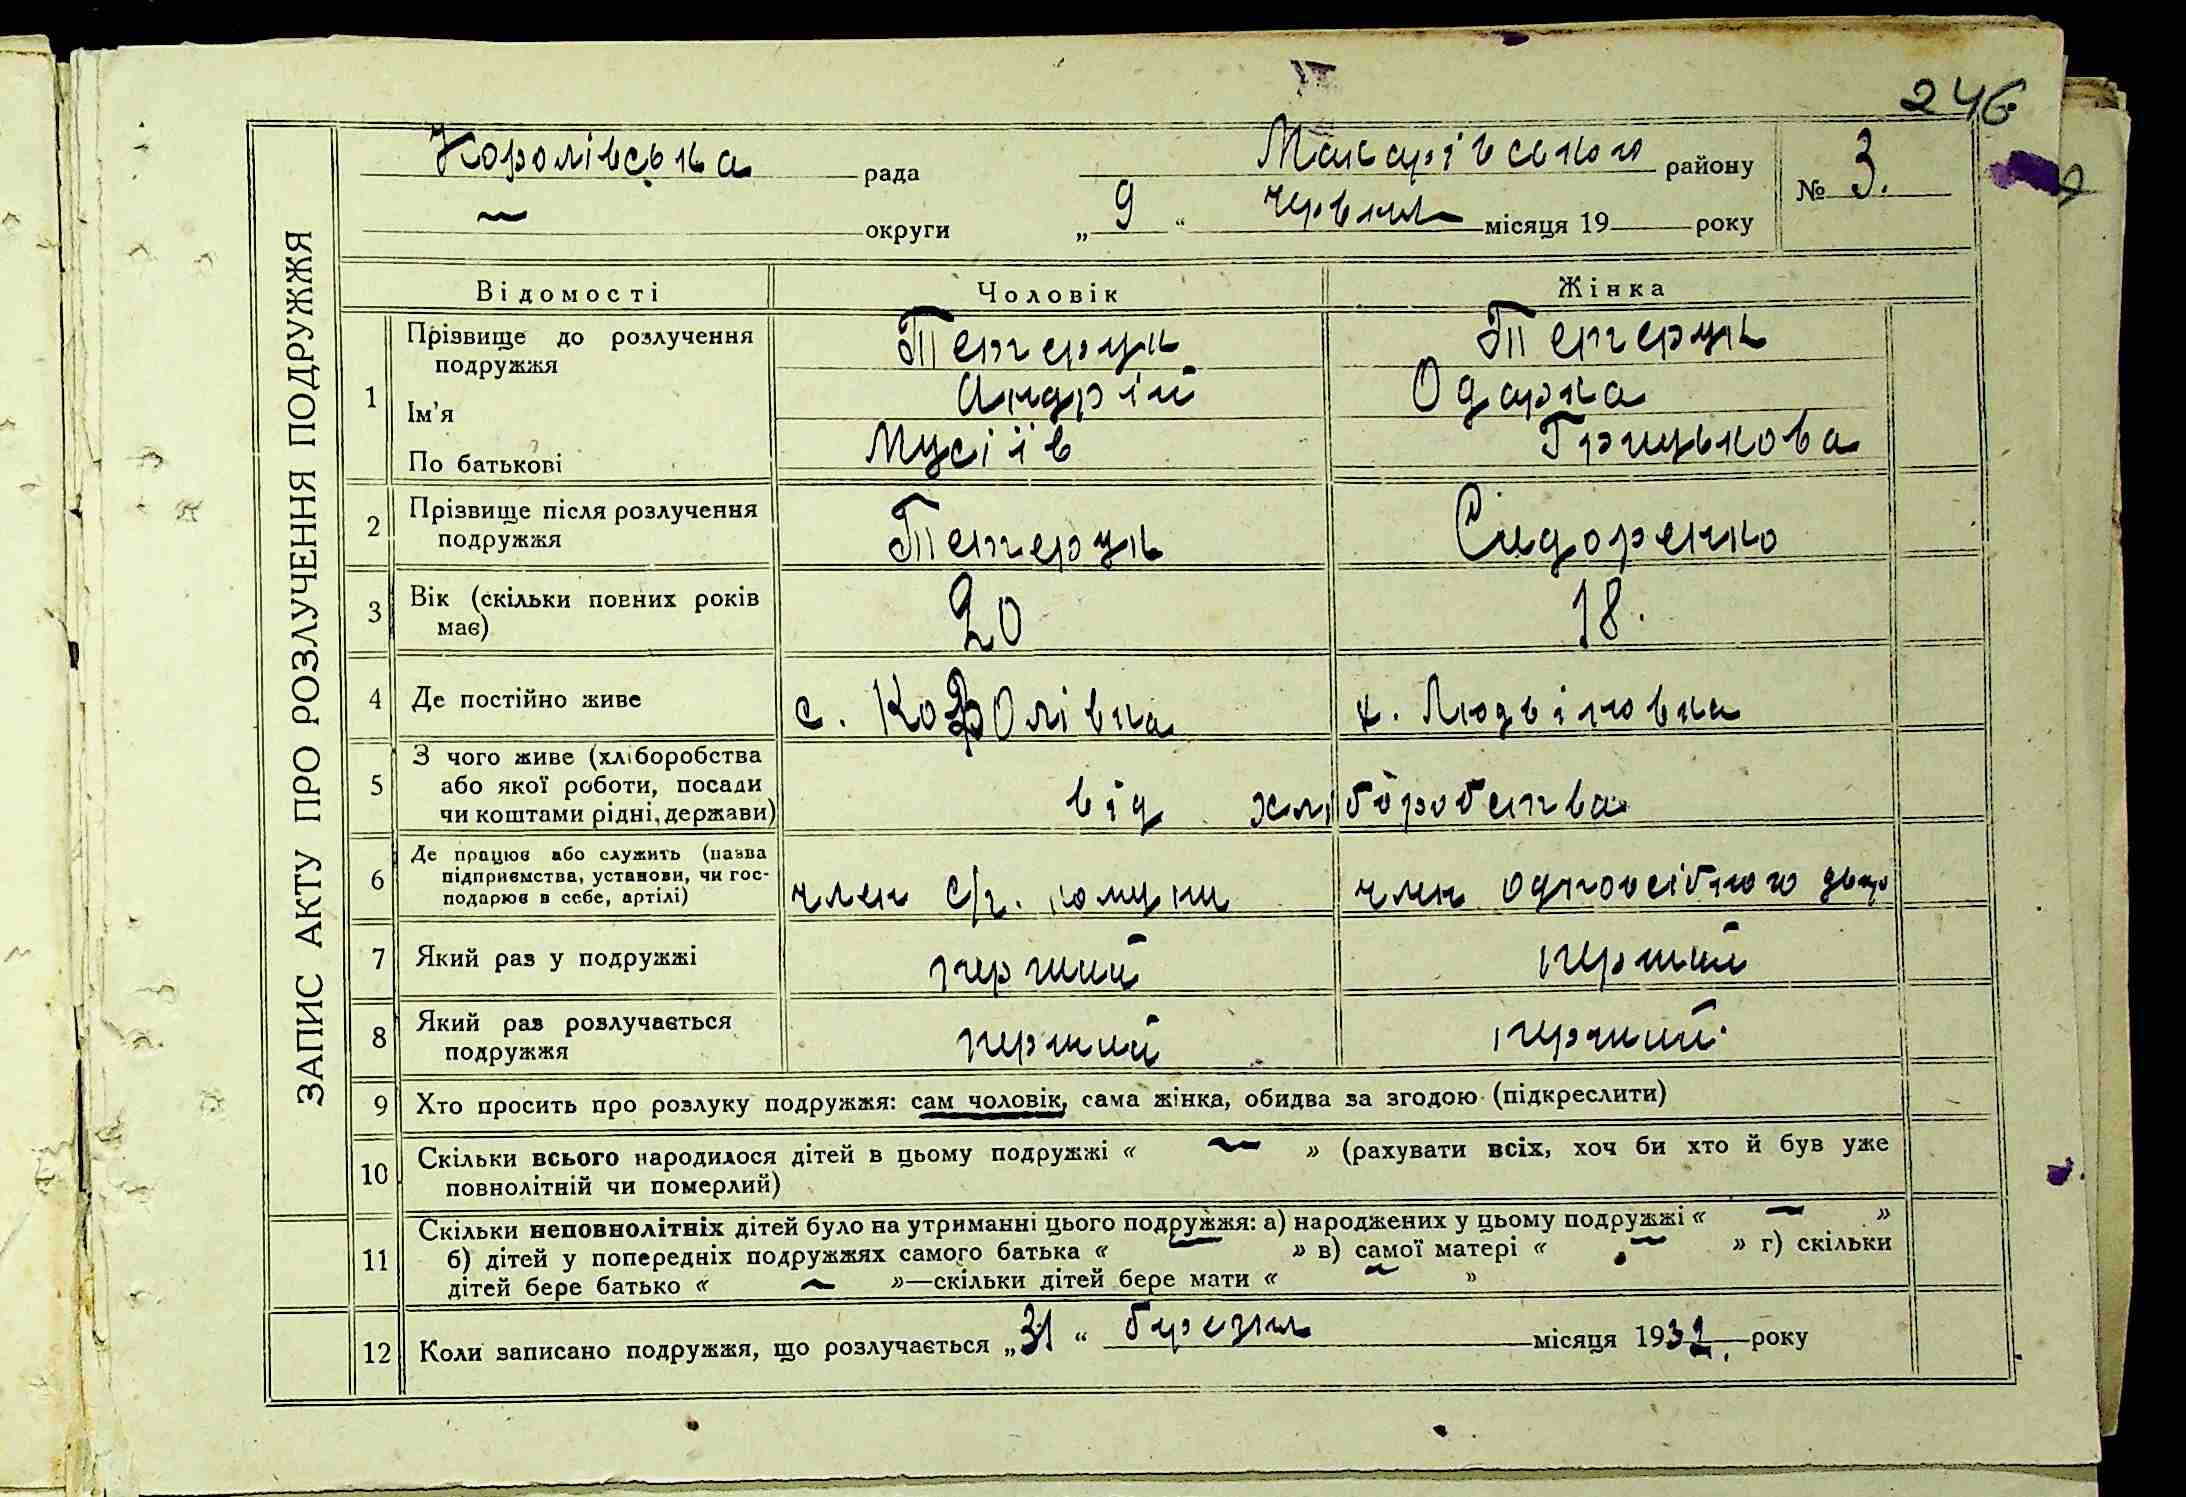 246
ЗАПИС АКТУ ПРО РОЗЛУЧЕННЯ ПОДРУЖЖЯ
Королівська рада Макарівського району № 3.
~ округи „ 9 “ червня місяця 19 року
Відомості Чоловік Жінка
1 Прізвище до розлучення подружжя Тетерук Тетерук
Ім'я Андрій Одарка
По батькові Мусіїв Грицькова
2 Прізвище після розлучення подружжя Тетерук Сидоренко
3 Вік (скільки повних років має) 20 18.
4 Де постійно живе с. Королівка к. Людвіновка
5 З чого живе (хліборобства або якої роботи, посади чи коштами рідні, держави) від хліборобства
6 Де працює або служить (назва підприємства, установи, чи господарює в себе, артілі) член с/г. комуни член одноосібного двору
7 Який раз у подружжі перший перший
8 Який раз розлучається подружжя перший перший.
9 Хто просить про розлуку подружжя: сам чоловік, сама жінка, обидва за згодою (підкреслити)
10 Скільки всього народилося дітей в цьому подружжі « ~ » (рахувати всіх, хоч би хто й був уже
повнолітній чи померлий)
11 Скільки неповнолітніх дітей було на утриманні цього подружжя: а) народжених у цьому подружжі « ~ »
б) дітей у попередніх подружжях самого батька « » в) самої матері « ~ » г) скільки
дітей бере батько « ~ »—скільки дітей бере мати « ~ »
12 Коли записано подружжя, що розлучається „31 “ березня місяця 1932. року